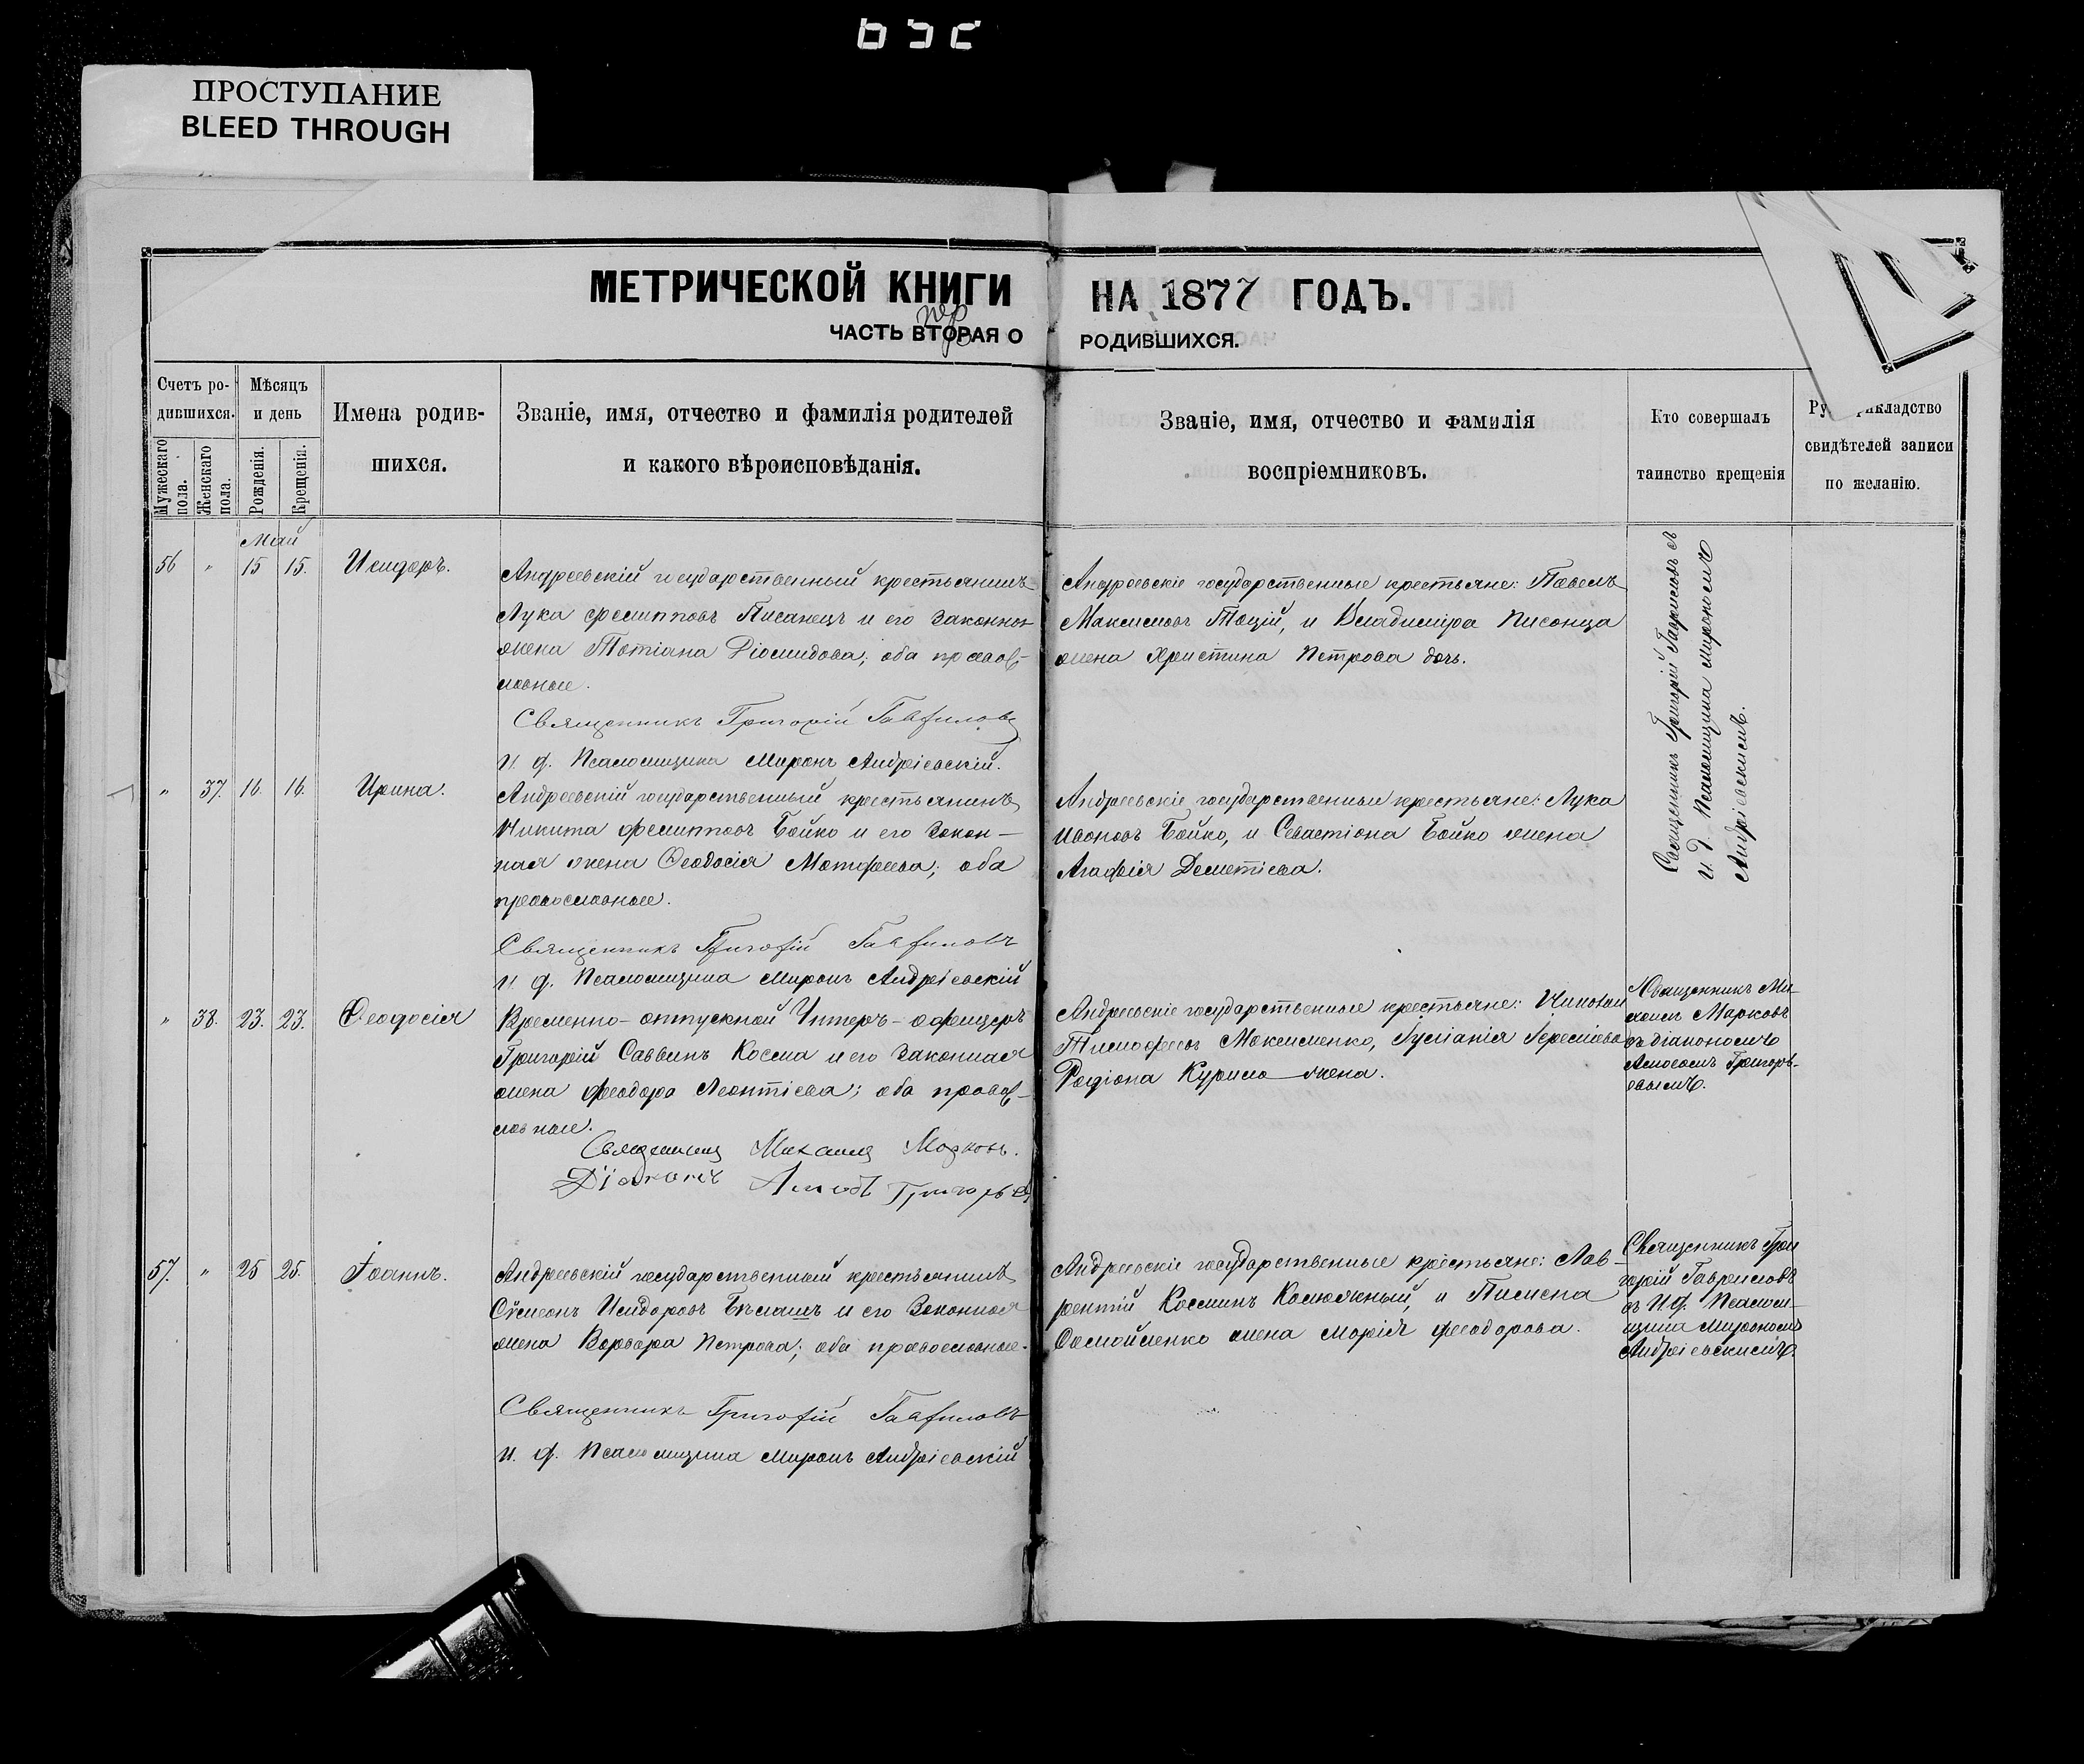 ПРОСТУПАНИЕ
BLEED THROUGH
МЕТРИЧЕСКОЙ КНИГИ
НА 1877 ГОДЪ.
пер
ЧАСТЬ ВТОРАЯ О
РОДИВШИХСЯ.
Счетъ ро-
дившихся.
Мужескаго
пола.
Женскаго
пола.
Мѣсяцъ
и день
Рожденія.
Крещенія.
Имена родив-
шихся.
Званіе, имя, отчество и фамилія родителей
и какого вѣроисповѣданія.
Званіе, имя, отчество и фамилія
воспріемниковъ.
Кто совершалъ
таинство крещенія
свидѣтелей записи
по желанію.
Май
56 " 15 15. Исидоръ.
Андреевскій государственный крестьянинъ
Лука Филипповъ Писанецъ и его законная
жена Татіана Діомидова; оба право-
славные.
Священникъ Григорій Гавриловъ
и. д. Псаломщика Миронъ Андріевскій.
Андреевскіе государственные крестьяне: Павелъ
Максимовъ Тоцій, и Владиміра Писанца
жена Христина Петрова дочь.
Священникъ Григорій Гавриловъ съ
и. д. Псаломщика Мирономъ
Андріевскимъ.
" 37. 16. 16. Ирина.
Андреевскій государственный крестьянинъ
Никита Филипповъ Бойко и его закон-
ная жена Ѳеодосія Матфеева; оба
православные.
Священникъ Григорій Гавриловъ
и д. Псаломщика Миронъ Андріевскій
Андреевскіе государственные крестьяне: Лука
Ивановъ Бойко, и Севастіана Бойко жена
Агафія Деметіева.
" 38. 23. 23. Ѳеодосія
Временно-отпускной Унтеръ-офицеръ
Григорій Саввинъ Косма и его законная
жена Феодора Леонтіева; оба право-
славные.
Священникъ Михаилъ Марковъ.
Діаконъ Григорьевъ
Андреевскіе государственные крестьяне: Николай
Тимофеевъ Максименко, Іуліанія Іереміева
Родіона Курила жена.
Священникъ Ми-
хаилъ Марковъ
съ діакономъ
Григорь-
евымъ.
57. " 25 25. Іоаннъ.
Андреевскій государственный крестьянинъ
Сѵмеонъ Исидоровъ Бѣлашъ и его законная
жена Варвара Петрова; оба православные.
Священникъ Григорій Гавриловъ
и. д. Псаломщика Миронъ Андріевскій
Андреевскіе государственные крестьяне: Лав-
рентій Косминъ Калюжный, и Пимена
жена Марія Феодорова.
Священникъ Гри
горій Гавриловъ
съ и д. Псалом-
щика Мирономъ
Андріевскимъ.